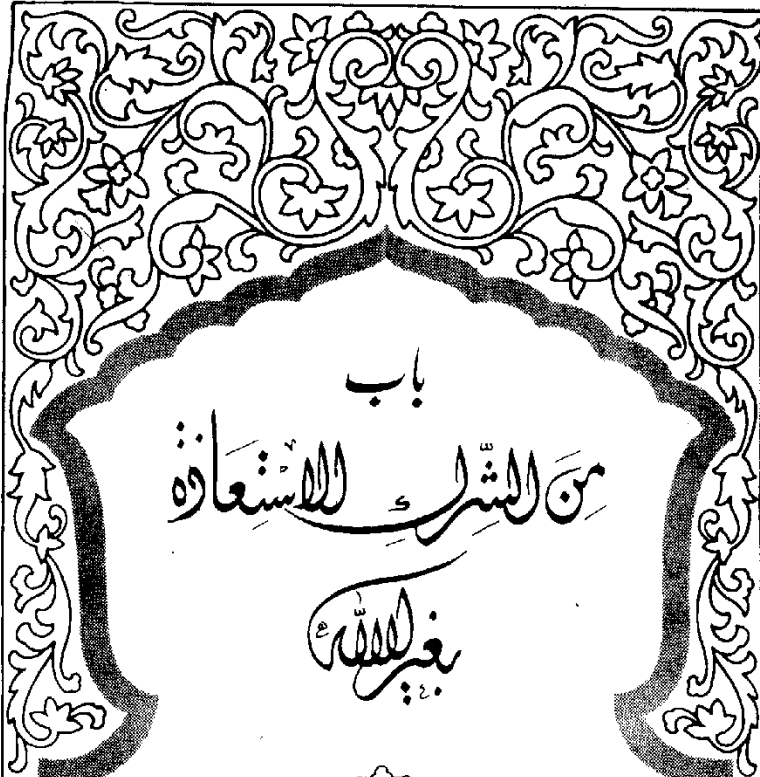 باب
مِنَ الشِّركِ الاسْتِعَاذة
بغير الله